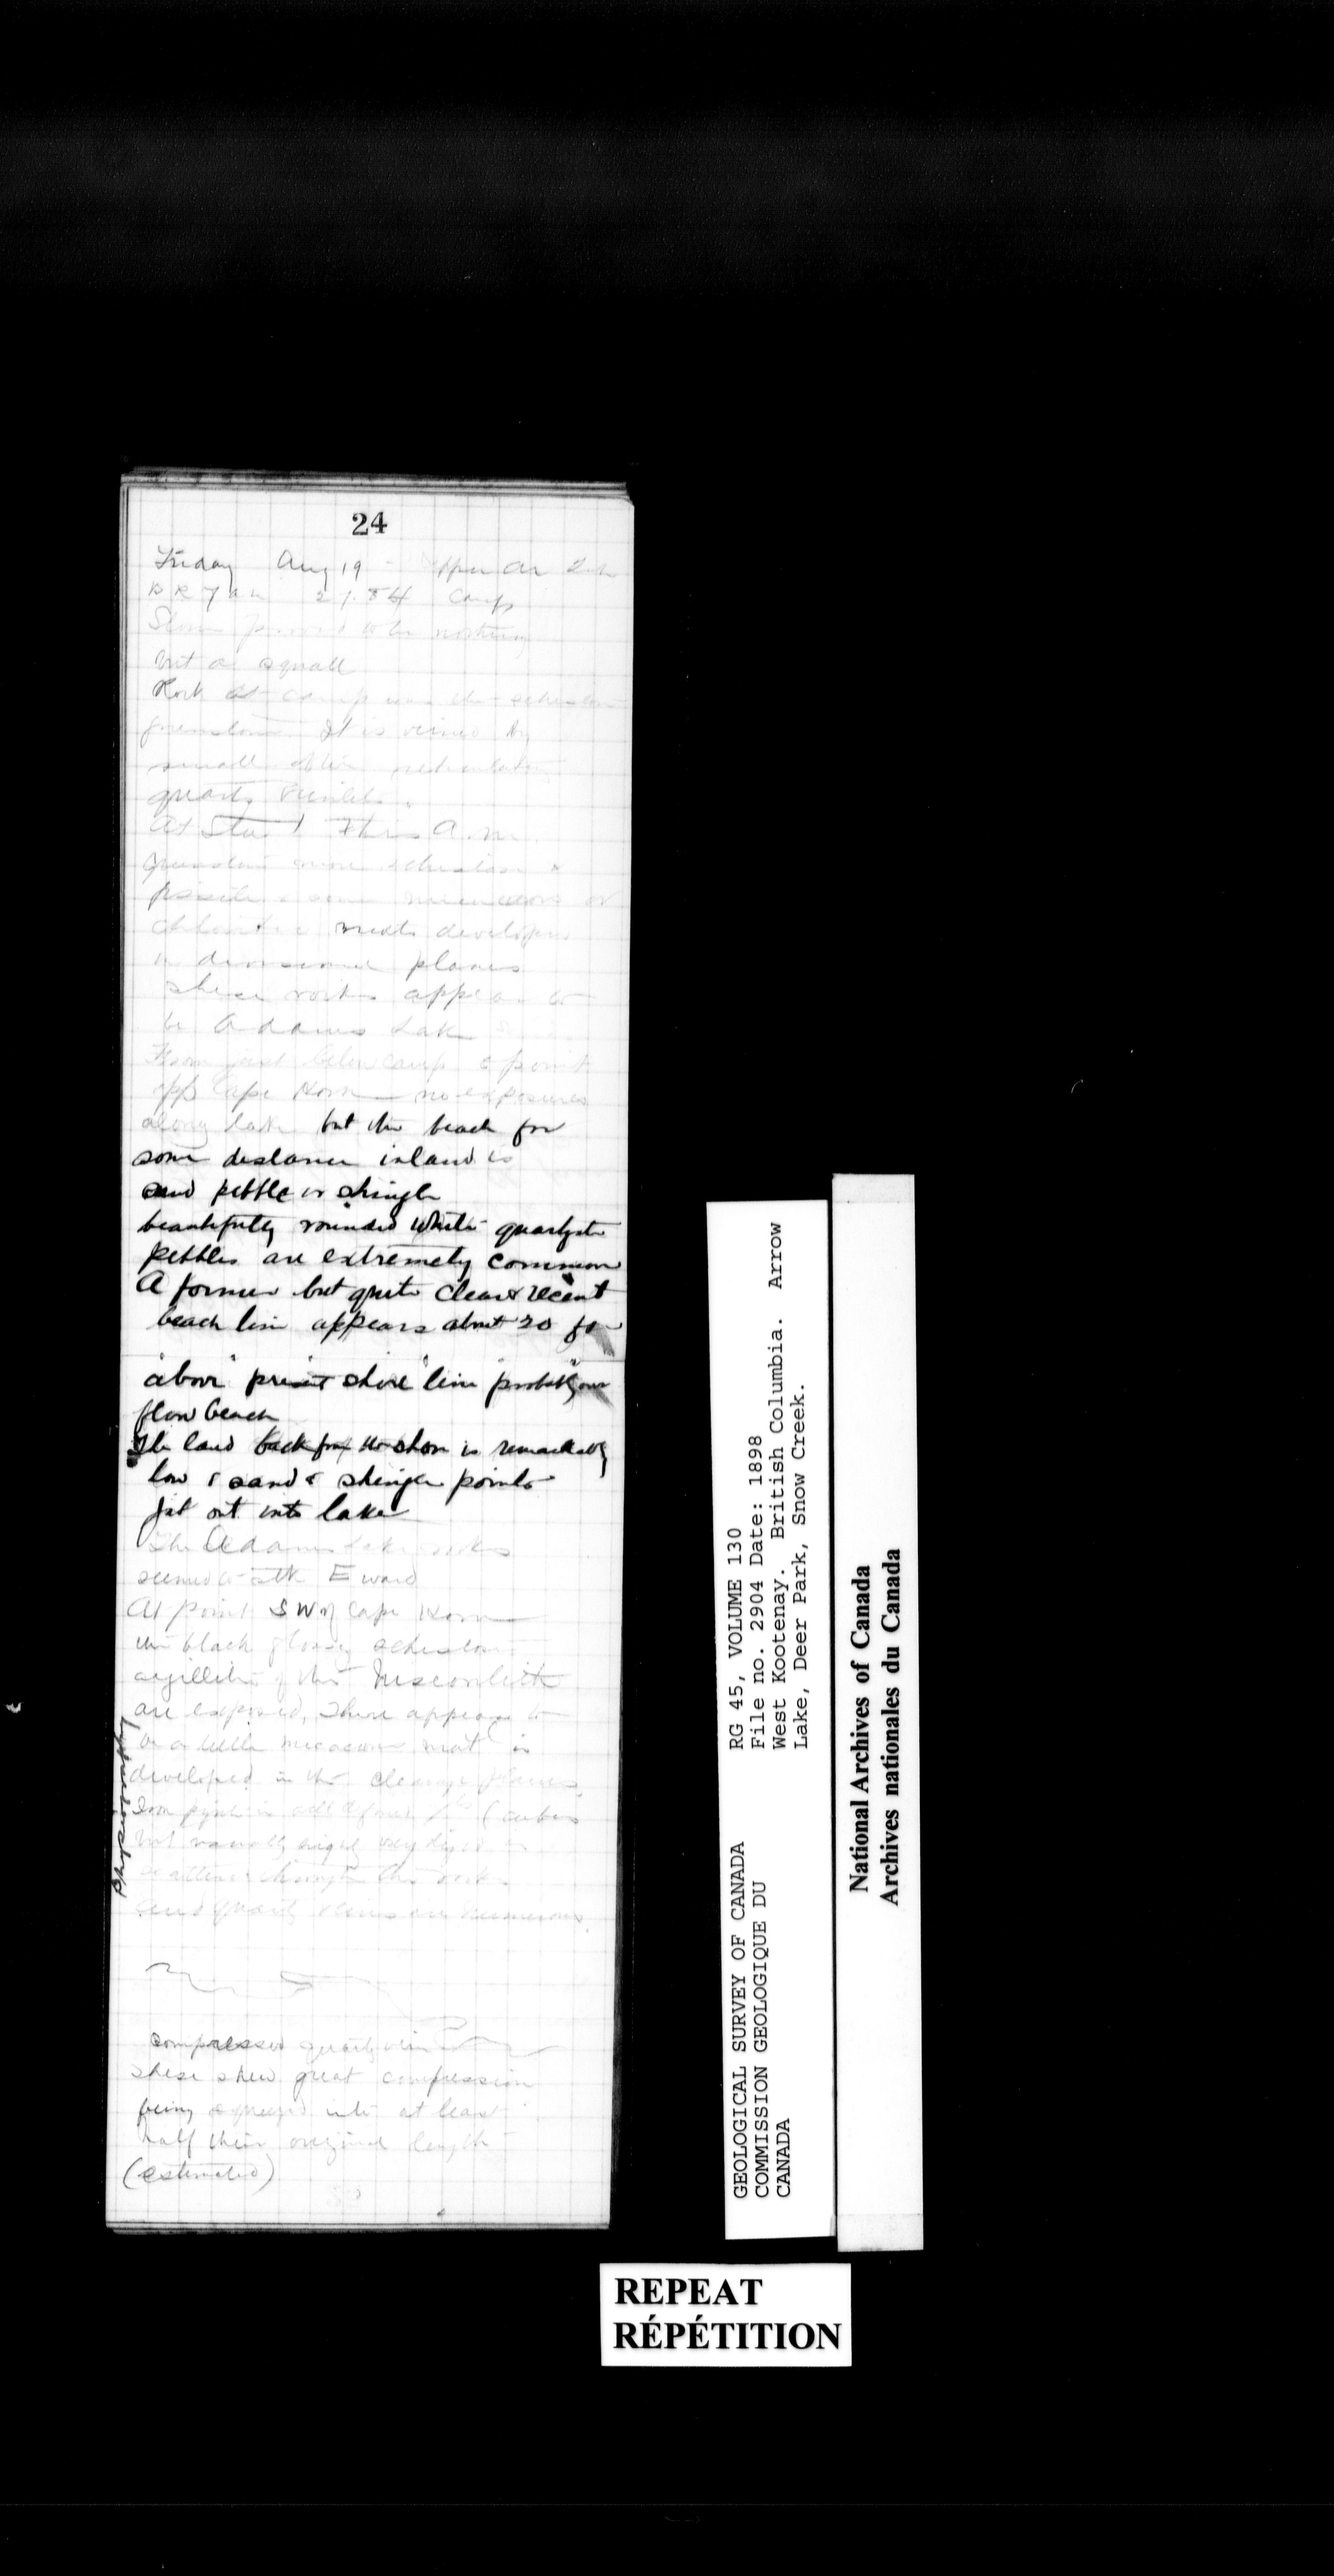 24
Friday Aug 19 - Upper Arr Lake
27.84 Camp
Storm proved to be nothing
but a squall
Rock at camp was the schistose
greenstone It is veined by
small often reticulating
quartz veinlets.
At Start This A.m.
greenstone more schistose &
fissile & some micaceous or
chloritic mat'l developed
in divisional planes
These rocks appear to
be Adams Lake Series
From just below camp to point
opp Cape Horn — no exposures
along lake but the beach for
some distance inland is
sand pebble or shingle
beautifully rounded white quartzite
pebbles are extremely common
A former but quite clear & recent
beach line appears about 20 ft
above present shore line probably over
flow beach
The land back from the shore is remarkably
low & sand & shingle points
jut out into lake
The Adams Lake rocks
seemed to strk E ward
At point SW of Cape Horn
the black glossy schistose
argillite of the Nisconlith
are exposed, There appears to
be a little micaceous mat'l is
developed in the cleavage planes
Iron pyrite in cubes
but usually single
scattered through the rocks
and quartz veins are numerous.
compressed quartz vein
These shew great compression
being squeezed into at least
half their original length
(estimated)
Physiography
RG 45, VOLUME 130
File no. 2904 Date: 1898
West Kootenay. British Columbia. Arrow
Lake, Deer Park, Snow Creek.
GEOLOGICAL SURVEY OF CANADA
COMMISSION GEOLOGIQUE DU
CANADA
National Archives of Canada
Archives nationales du Canada
REPEAT
RÉPÉTITION